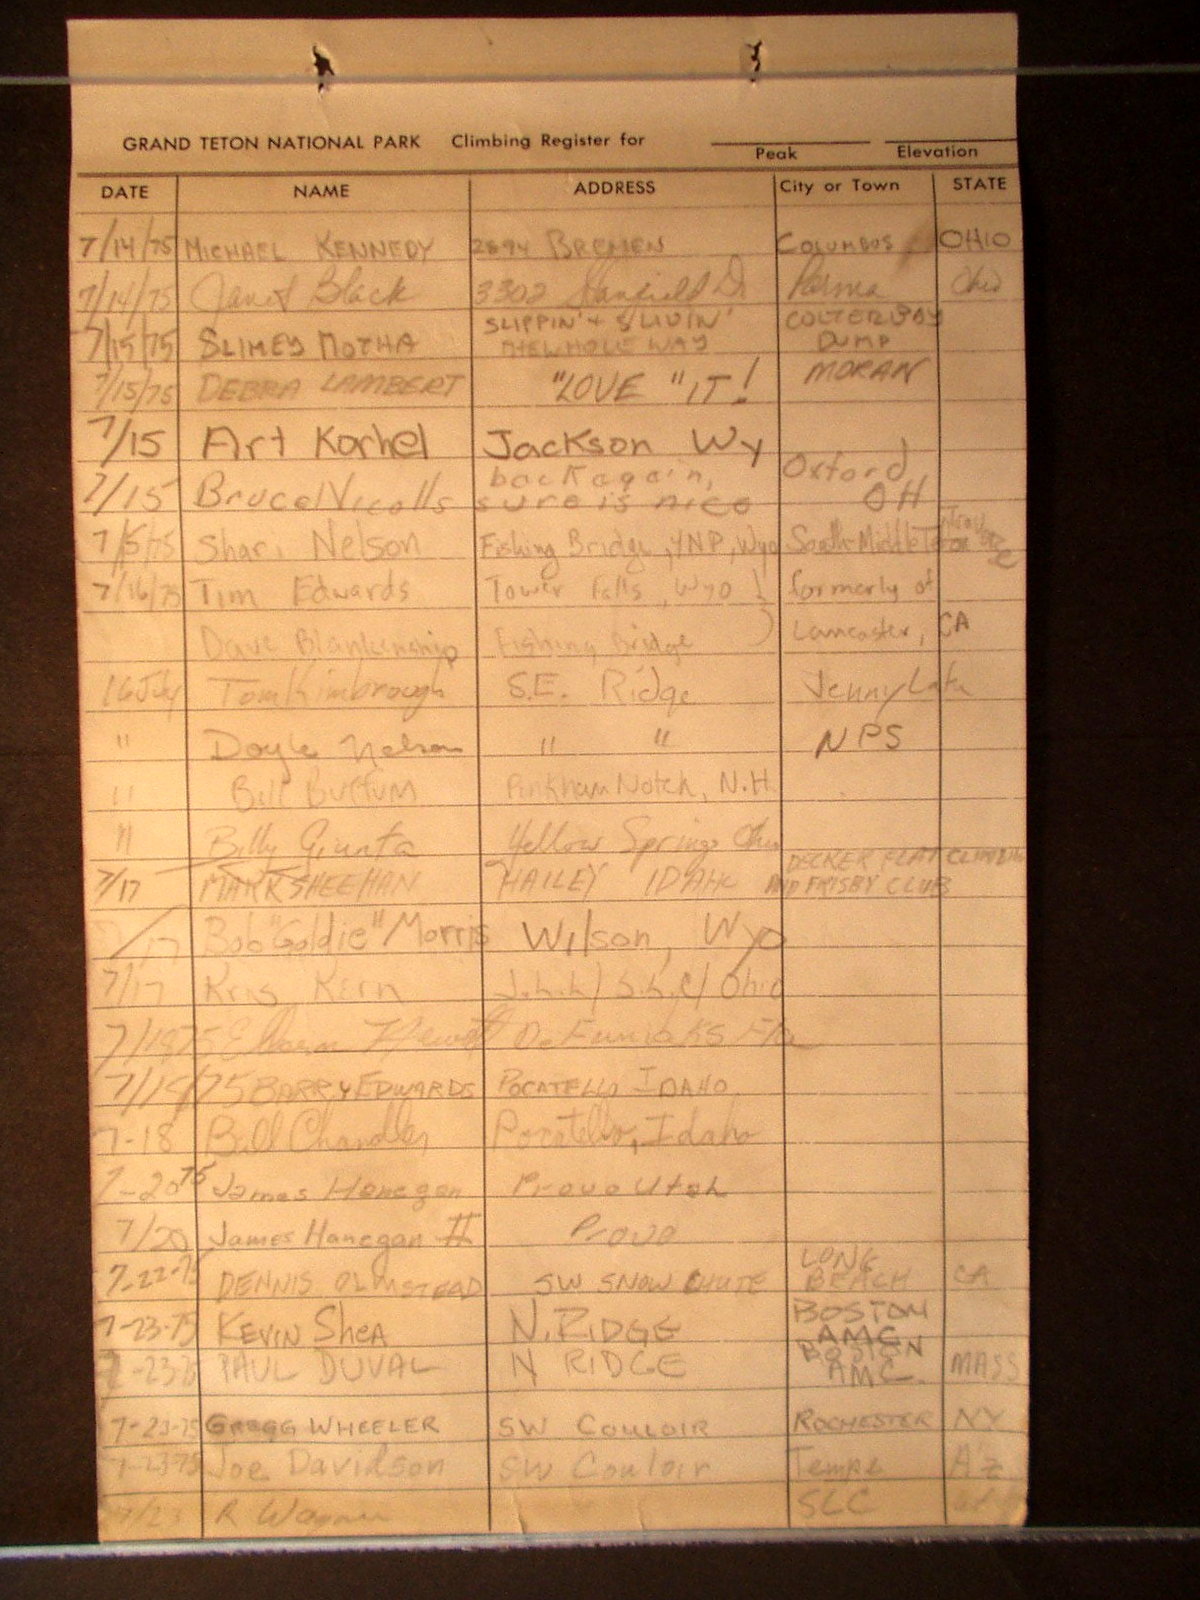 GRAND TETON NATIONAL PARK Climbing Register for
Peak Elevation
DATE NAME ADDRESS City or Town STATE
7/14/75 MICHAEL KENNEDY 2894 BREMEN COLUMBUS OHIO
7/14/75 Janet Black 3302 Parma Ohio
SLIPPIN' + SLIVIN' COLTER BAY
7/15/75 SLIMEY MOTHA THEWHOLE WAY DUMP
7/15/75 DEBRA LAMBERT "LOVE "IT! MORAN
7/15 Art Korhel Jackson Wy
back again, Oxford
7/15 Bruce Nicolls sure is nice OH
7/15/75 Shari Nelson Fishing Bridge, YNP, Wyo South-Middle
7/16/75 Tim Edwards Tower Falls, Wyo } formerly of
Dave Blankenship Fishing Bridge Lancaster, CA
16 July Tom Kimbrough S.E. Ridge Jenny Lake
" Doyle Nelson " " NPS
" Bill Buffum Pinkham Notch, N.H.
" Billy Giunta Yellow Springs Ohio
DECKER FLAT CLIMBING
7/17 MARK SHEEHAN HAILEY IDAHO AND FRISBY CLUB
/17 Bob "Goldie" Morris Wilson, Wyo
7/17 Kris Kern J.L.L/ S.L.C/ Ohio
7/18 75 De Funiaks Fla
7/19/75 BARRY EDWARDS POCATELLO IDAHO
7-18 Bill Chandler Pocatello, Idaho
7-20 75 James Hanegan Provo Utah
7/20 James Hanegan II Provo
LONG
7-22-75 DENNIS OLMSTEAD SW SNOW CHUTE BEACH CA
BOSTON
7-23-75 KEVIN SHEA N. RIDGE AMC
BOSTON
7-23-75 PAUL DUVAL N RIDGE AMC MASS
7-23-75 GREGG WHEELER SW COULOIR ROCHESTER NY
7-23-75 Joe Davidson SW Couloir Tempe Az
7/23 R Wagner SLC